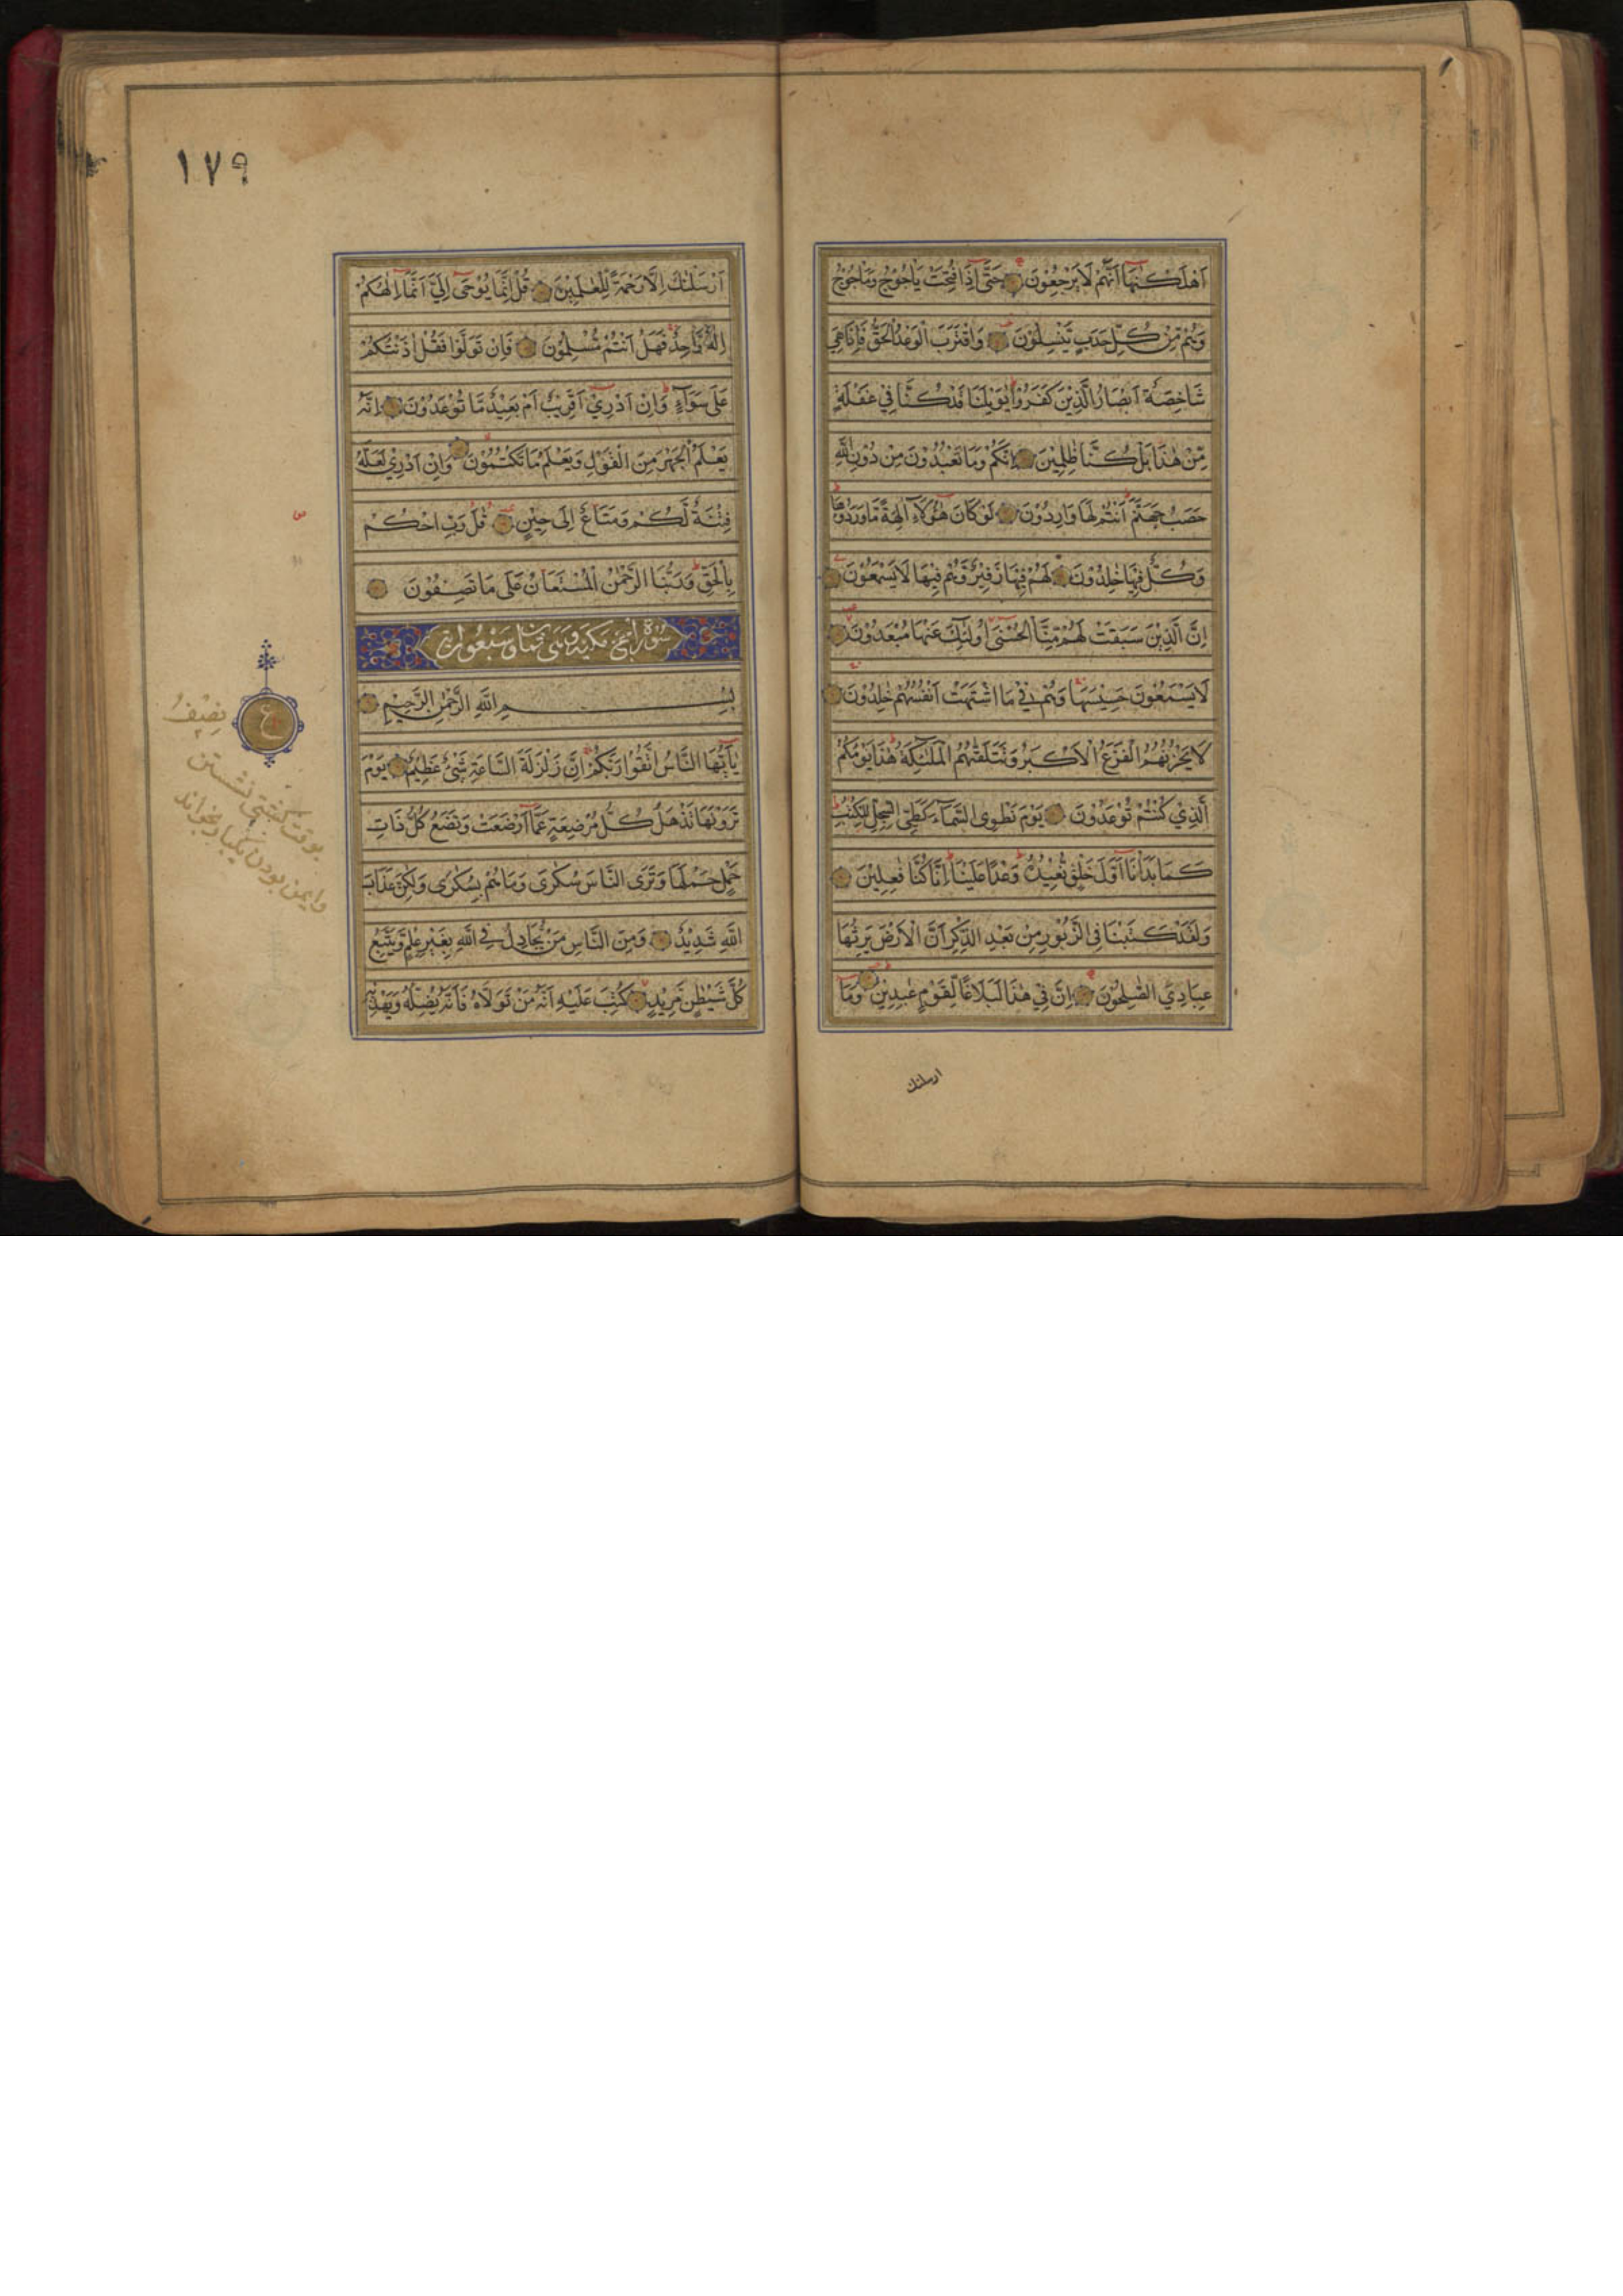 اَهْلَكْنٰهَآ اَنَّهُمْ لَا يَرْجِعُوْنَ حَتّٰىٓ اِذَا فُتِحَتْ يَاْجُوْجُ وَمَاْجُوْجُ
وَهُمْ مِّنْ كُلِّ حَدَبٍ يَّنْسِلُوْنَ وَاقْتَرَبَ الْوَعْدُ الْحَقُّ فَاِذَا هِيَ
شَاخِصَةٌ اَبْصَارُ الَّذِيْنَ كَفَرُوْا يٰوَيْلَنَا قَدْ كُنَّا فِيْ غَفْلَةٍ
مِّنْ هٰذَا بَلْ كُنَّا ظٰلِمِيْنَ اِنَّكُمْ وَمَا تَعْبُدُوْنَ مِنْ دُوْنِ اللّٰهِ
حَصَبُ جَهَنَّمَ اَنْتُمْ لَهَا وَارِدُوْنَ لَوْ كَانَ هٰٓؤُلَآءِ اٰلِهَةً مَّا وَرَدُوْهَا
وَكُلٌّ فِيْهَا خٰلِدُوْنَ لَهُمْ فِيْهَا زَفِيْرٌ وَّهُمْ فِيْهَا لَا يَسْمَعُوْنَ
اِنَّ الَّذِيْنَ سَبَقَتْ لَهُمْ مِّنَّا الْحُسْنٰىٓ اُولٰٓئِكَ عَنْهَا مُبْعَدُوْنَ
لَا يَسْمَعُوْنَ حَسِيْسَهَا وَهُمْ فِيْ مَا اشْتَهَتْ اَنْفُسُهُمْ خٰلِدُوْنَ
لَا يَحْزُنُهُمُ الْفَزَعُ الْاَكْبَرُ وَتَتَلَقّٰهُمُ الْمَلٰٓئِكَةُ هٰذَا يَوْمُكُمُ
الَّذِيْ كُنْتُمْ تُوْعَدُوْنَ يَوْمَ نَطْوِى السَّمَآءَ كَطَيِّ السِّجِلِّ لِلْكُتُبِ
كَمَا بَدَاْنَآ اَوَّلَ خَلْقٍ نُّعِيْدُهٗ وَعْدًا عَلَيْنَا اِنَّا كُنَّا فٰعِلِيْنَ
وَلَقَدْ كَتَبْنَا فِى الزَّبُوْرِ مِنْ بَعْدِ الذِّكْرِ اَنَّ الْاَرْضَ يَرِثُهَا
عِبَادِيَ الصّٰلِحُوْنَ اِنَّ فِيْ هٰذَا لَبَلَاغًا لِّقَوْمٍ عٰبِدِيْنَ وَمَآ
ارسلنك
١٧٩
اَرْسَلْنٰكَ اِلَّا رَحْمَةً لِّلْعٰلَمِيْنَ قُلْ اِنَّمَا يُوْحٰىٓ اِلَيَّ اَنَّمَآ اِلٰهُكُمْ
اِلٰهٌ وَّاحِدٌ فَهَلْ اَنْتُمْ مُّسْلِمُوْنَ فَاِنْ تَوَلَّوْا فَقُلْ اٰذَنْتُكُمْ
عَلٰى سَوَآءٍ وَاِنْ اَدْرِيْٓ اَقَرِيْبٌ اَمْ بَعِيْدٌ مَّا تُوْعَدُوْنَ اِنَّهٗ
يَعْلَمُ الْجَهْرَ مِنَ الْقَوْلِ وَيَعْلَمُ مَا تَكْتُمُوْنَ وَاِنْ اَدْرِيْ لَعَلَّهٗ
فِتْنَةٌ لَّكُمْ وَمَتَاعٌ اِلٰى حِيْنٍ قُلْ رَبِّ احْكُمْ
بِالْحَقِّ وَرَبُّنَا الرَّحْمٰنُ الْمُسْتَعَانُ عَلٰى مَا تَصِفُوْنَ
سورة الحج مكية وهى ثمان وسبعون اية
بِسْمِ اللّٰهِ الرَّحْمٰنِ الرَّحِيْمِ
يٰٓاَيُّهَا النَّاسُ اتَّقُوْا رَبَّكُمْ اِنَّ زَلْزَلَةَ السَّاعَةِ شَيْءٌ عَظِيْمٌ يَوْمَ
تَرَوْنَهَا تَذْهَلُ كُلُّ مُرْضِعَةٍ عَمَّآ اَرْضَعَتْ وَتَضَعُ كُلُّ ذَاتِ
حَمْلٍ حَمْلَهَا وَتَرَى النَّاسَ سُكٰرٰى وَمَا هُمْ بِسُكٰرٰى وَلٰكِنَّ عَذَابَ
اللّٰهِ شَدِيْدٌ وَمِنَ النَّاسِ مَنْ يُّجَادِلُ فِى اللّٰهِ بِغَيْرِ عِلْمٍ وَّيَتَّبِعُ
كُلَّ شَيْطٰنٍ مَّرِيْدٍ كُتِبَ عَلَيْهِ اَنَّهٗ مَنْ تَوَلَّاهُ فَاَنَّهٗ يُضِلُّهٗ وَيَهْدِيْهِ
ع
نصف
بوقت كشتى نشستن
وايمن بودن يكبار بخواند